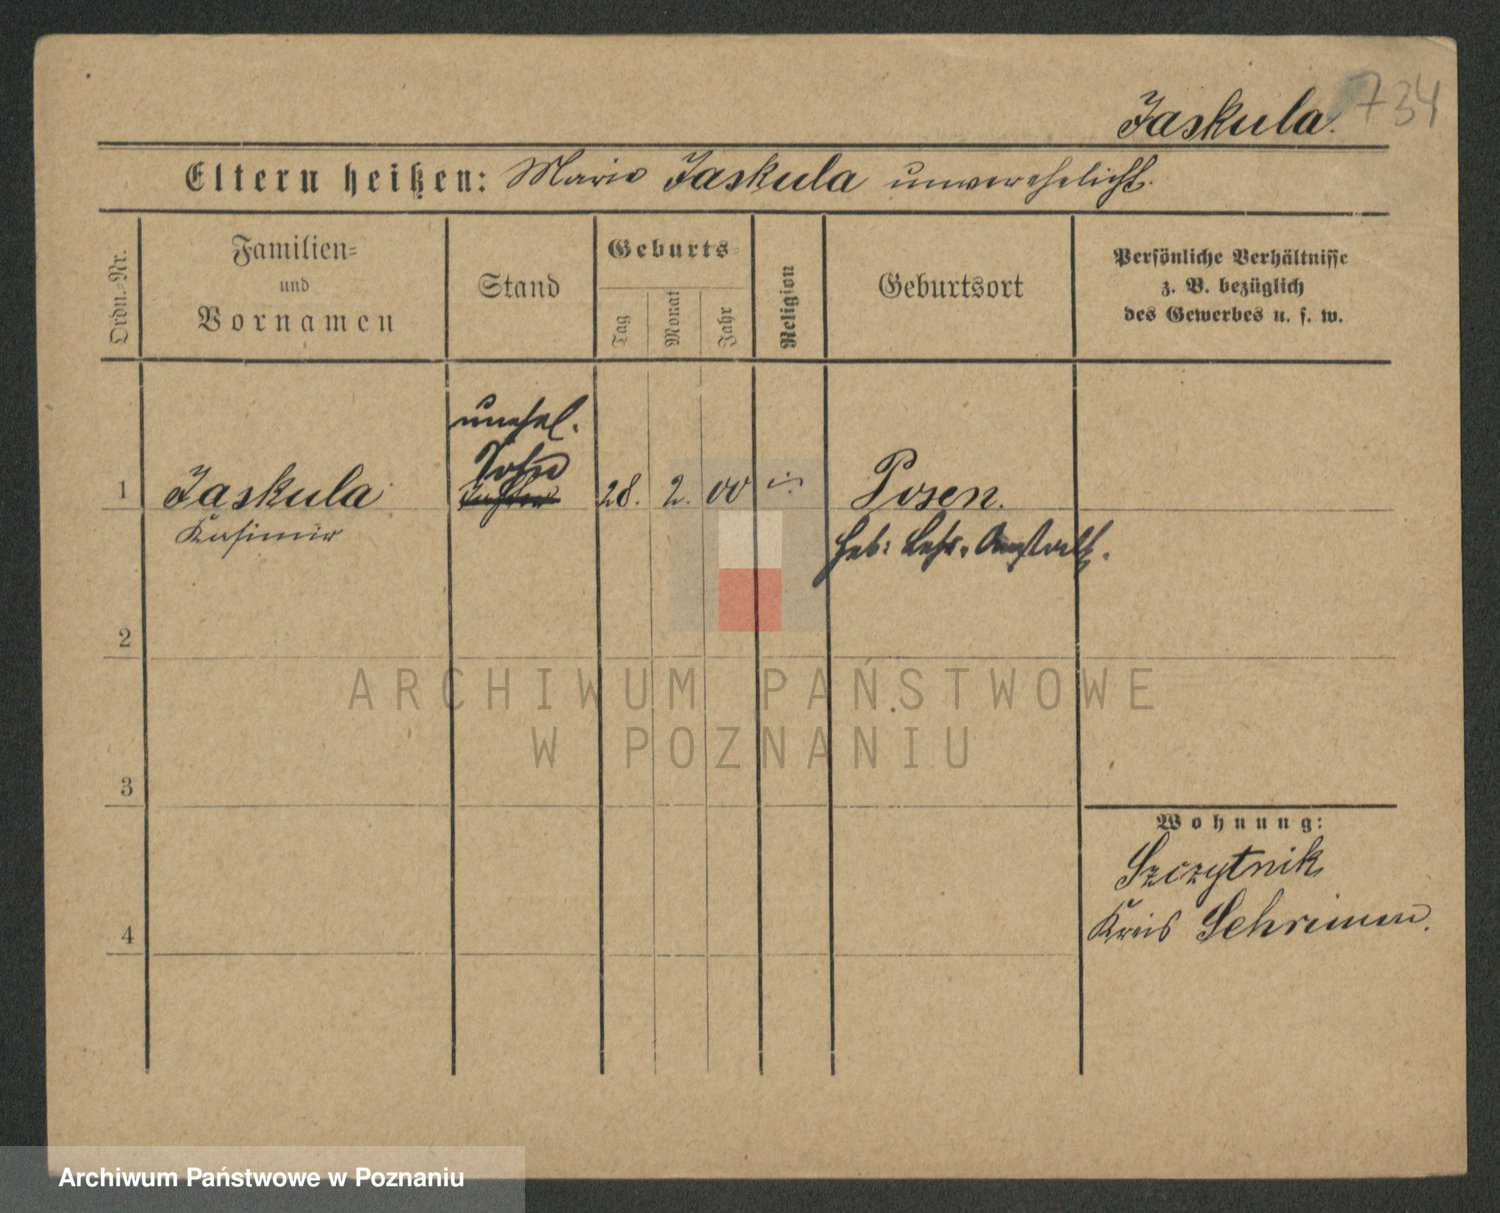 734
Jaskula.
Eltern heißen: Marie Jaskula unverehelicht.
Ordn.-Nr.
Familien-
und
Vornamen
Stand
Geburts-
Tag
Monat
Jahr
Religion
Geburtsort
Persönliche Verhältnisse
z. B. bezüglich
des Gewerbes u. s. w.
unehel.
Sohn
1 Jaskula 28. 2. 00 Posen.
Kasimir
Heb: Lehr-Anstalt.
2
3
4
Wohnung:
Szczytnik
Kreis Schrimm.
ARCHIWUM PAŃSTWOWE
W POZNANIU
Archiwum Państwowe w Poznaniu